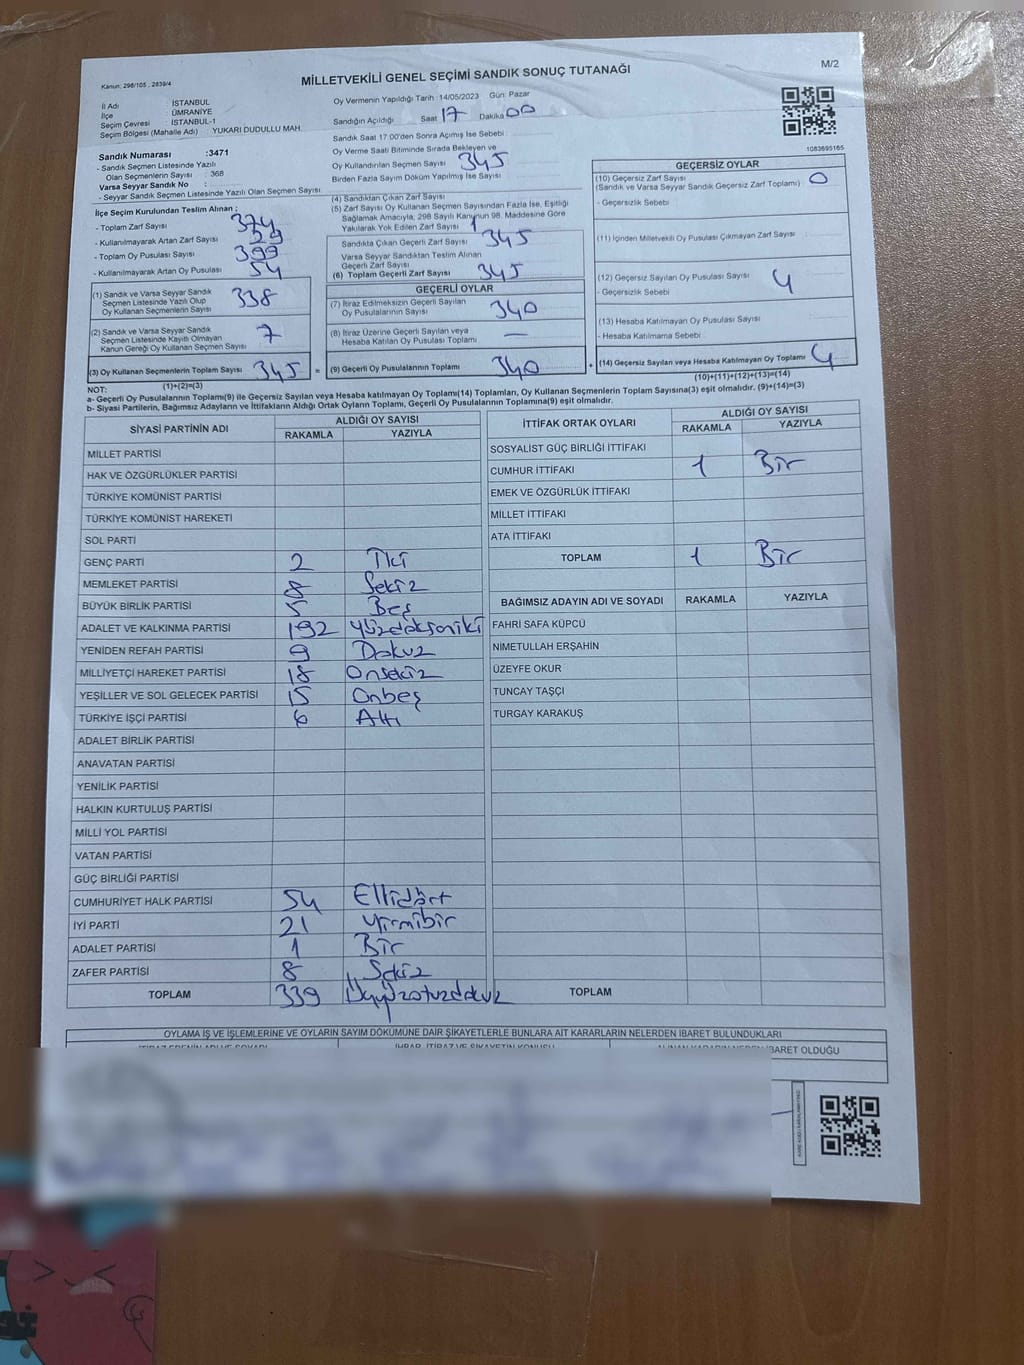 M/2
Kanun: 298/105 , 2839/4
MİLLETVEKİLİ GENEL SEÇİMİ SANDIK SONUÇ TUTANAĞI
İl Adı İSTANBUL
İlçe ÜMRANİYE
Seçim Çevresi İSTANBUL-1
Seçim Bölgesi (Mahalle Adı) : YUKARI DUDULLU MAH.
Oy Vermenin Yapıldığı Tarih :14/05/2023 Gün: Pazar
Sandığın Açıldığı Saat 17 Dakika 00
Sandık Saat 17:00'den Sonra Açımış İse Sebebi
Oy Verme Saati Bitiminde Sırada Bekleyen ve
Oy Kullandırılan Seçmen Sayısı 345
Birden Fazla Sayım Döküm Yapılmış İse Sayısı
1083695165
Sandık Numarası :3471
- Sandık Seçmen Listesinde Yazılı
Olan Seçmenlerin Sayısı : 368
Varsa Seyyar Sandık No :
- Seyyar Sandık Seçmen Listesinde Yazılı Olan Seçmen Sayısı
İlçe Seçim Kurulundan Teslim Alınan ;
- Toplam Zarf Sayısı 374
- Kullanılmayarak Artan Zarf Sayısı 29
- Toplam Oy Pusulası Sayısı 399
- Kullanılmayarak Artan Oy Pusulası 54
(1) Sandık ve Varsa Seyyar Sandık
Seçmen Listesinde Yazılı Olup
Oy Kullanan Seçmenlerin Sayısı 338
(2) Sandık ve Varsa Seyyar Sandık
Seçmen Listesinde Kayıtlı Olmayan
Kanun Gereği Oy Kullanan Seçmen Sayısı 7
(3) Oy Kullanan Seçmenlerin Toplam Sayısı 345 =
(1)+(2)=(3)
(4) Sandıktan Çıkan Zarf Sayısı
(5) Zarf Sayısı Oy Kullanan Seçmen Sayısından Fazla İse, Eşitliği
Sağlamak Amacıyla, 298 Sayılı Kanunun 98. Maddesine Göre
Yakılarak Yok Edilen Zarf Sayısı
Sandıkta Çıkan Geçerli Zarf Sayısı 345
Varsa Seyyar Sandıktan Teslim Alınan
Geçerli Zarf Sayısı
(6) Toplam Geçerli Zarf Sayısı 345
GEÇERLİ OYLAR
(7) İtiraz Edilmeksizin Geçerli Sayılan
Oy Pusulasının Sayısı 340
(8) İtiraz Üzerine Geçerli Sayılan veya
Hesaba Katılan Oy Pusulası Toplamı —
(9) Geçerli Oy Pusulalarının Toplamı 340 +
GEÇERSİZ OYLAR
(10) Geçersiz Zarf Sayısı 0
(Sandık ve Varsa Seyyar Sandık Geçersiz Zarf Toplamı)
- Geçersizlik Sebebi
(11) İçinden Milletvekili Oy Pusulası Çıkmayan Zarf Sayısı
(12) Geçersiz Sayılan Oy Pusulası Sayısı 4
- Geçersizlik Sebebi
(13) Hesaba Katılmayan Oy Pusulası Sayısı
- Hesaba Katılmama Sebebi
(14) Geçersiz Sayılan veya Hesaba Katılmayan Oy Toplamı 4
(10)+(11)+(12)+(13)=(14)
NOT:
a- Geçerli Oy Pusulalarının Toplamı(9) ile Geçersiz Sayılan veya Hesaba katılmayan Oy Toplamı(14) Toplamları, Oy Kullanan Seçmenlerin Toplam Sayısına(3) eşit olmalıdır. (9)+(14)=(3)
b- Siyasi Partilerin, Bağımsız Adayların ve İttifakların Aldığı Ortak Oyların Toplamı, Geçerli Oy Pusulalarının Toplamına(9) eşit olmalıdır.
SİYASİ PARTİNİN ADI ALDIĞI OY SAYISI
RAKAMLA YAZIYLA
MİLLET PARTİSİ
HAK VE ÖZGÜRLÜKLER PARTİSİ
TÜRKİYE KOMÜNİST PARTİSİ
TÜRKİYE KOMÜNİST HAREKETİ
SOL PARTİ
GENÇ PARTİ 2 İki
MEMLEKET PARTİSİ 8 Sekiz
BÜYÜK BİRLİK PARTİSİ 5 Beş
ADALET VE KALKINMA PARTİSİ 192 Yüzdoksaniki
YENİDEN REFAH PARTİSİ 9 Dokuz
MİLLİYETÇİ HAREKET PARTİSİ 18 Onsekiz
YEŞİLLER VE SOL GELECEK PARTİSİ 15 Onbeş
TÜRKİYE İŞÇİ PARTİSİ 6 Altı
ADALET BİRLİK PARTİSİ
ANAVATAN PARTİSİ
YENİLİK PARTİSİ
HALKIN KURTULUŞ PARTİSİ
MİLLİ YOL PARTİSİ
VATAN PARTİSİ
GÜÇ BİRLİĞİ PARTİSİ
CUMHURİYET HALK PARTİSİ 54 Ellidört
İYİ PARTİ 21 Yirmibir
ADALET PARTİSİ 1 Bir
ZAFER PARTİSİ 8 Sekiz
TOPLAM 339 Üçyüzotuzdokuz
İTTİFAK ORTAK OYLARI ALDIĞI OY SAYISI
RAKAMLA YAZIYLA
SOSYALİST GÜÇ BİRLİĞİ İTTİFAKI
CUMHUR İTTİFAKI 1 Bir
EMEK VE ÖZGÜRLÜK İTTİFAKI
MİLLET İTTİFAKI
ATA İTTİFAKI
TOPLAM 1 Bir
BAĞIMSIZ ADAYIN ADI VE SOYADI RAKAMLA YAZIYLA
FAHRİ SAFA KÜPCÜ
NIMETULLAH ERŞAHİN
ÜZEYFE OKUR
TUNCAY TAŞÇI
TURGAY KARAKUŞ
TOPLAM
OYLAMA İŞ VE İŞLEMLERİNE VE OYLARIN SAYIM DÖKÜMÜNE DAİR ŞİKAYETLERLE BUNLARA AİT KARARLARIN NELERDEN İBARET BULUNDUKLARI
İHBAR, İTİRAZ VE ŞİKAYETİN KONUSU
İBARET OLDUĞU